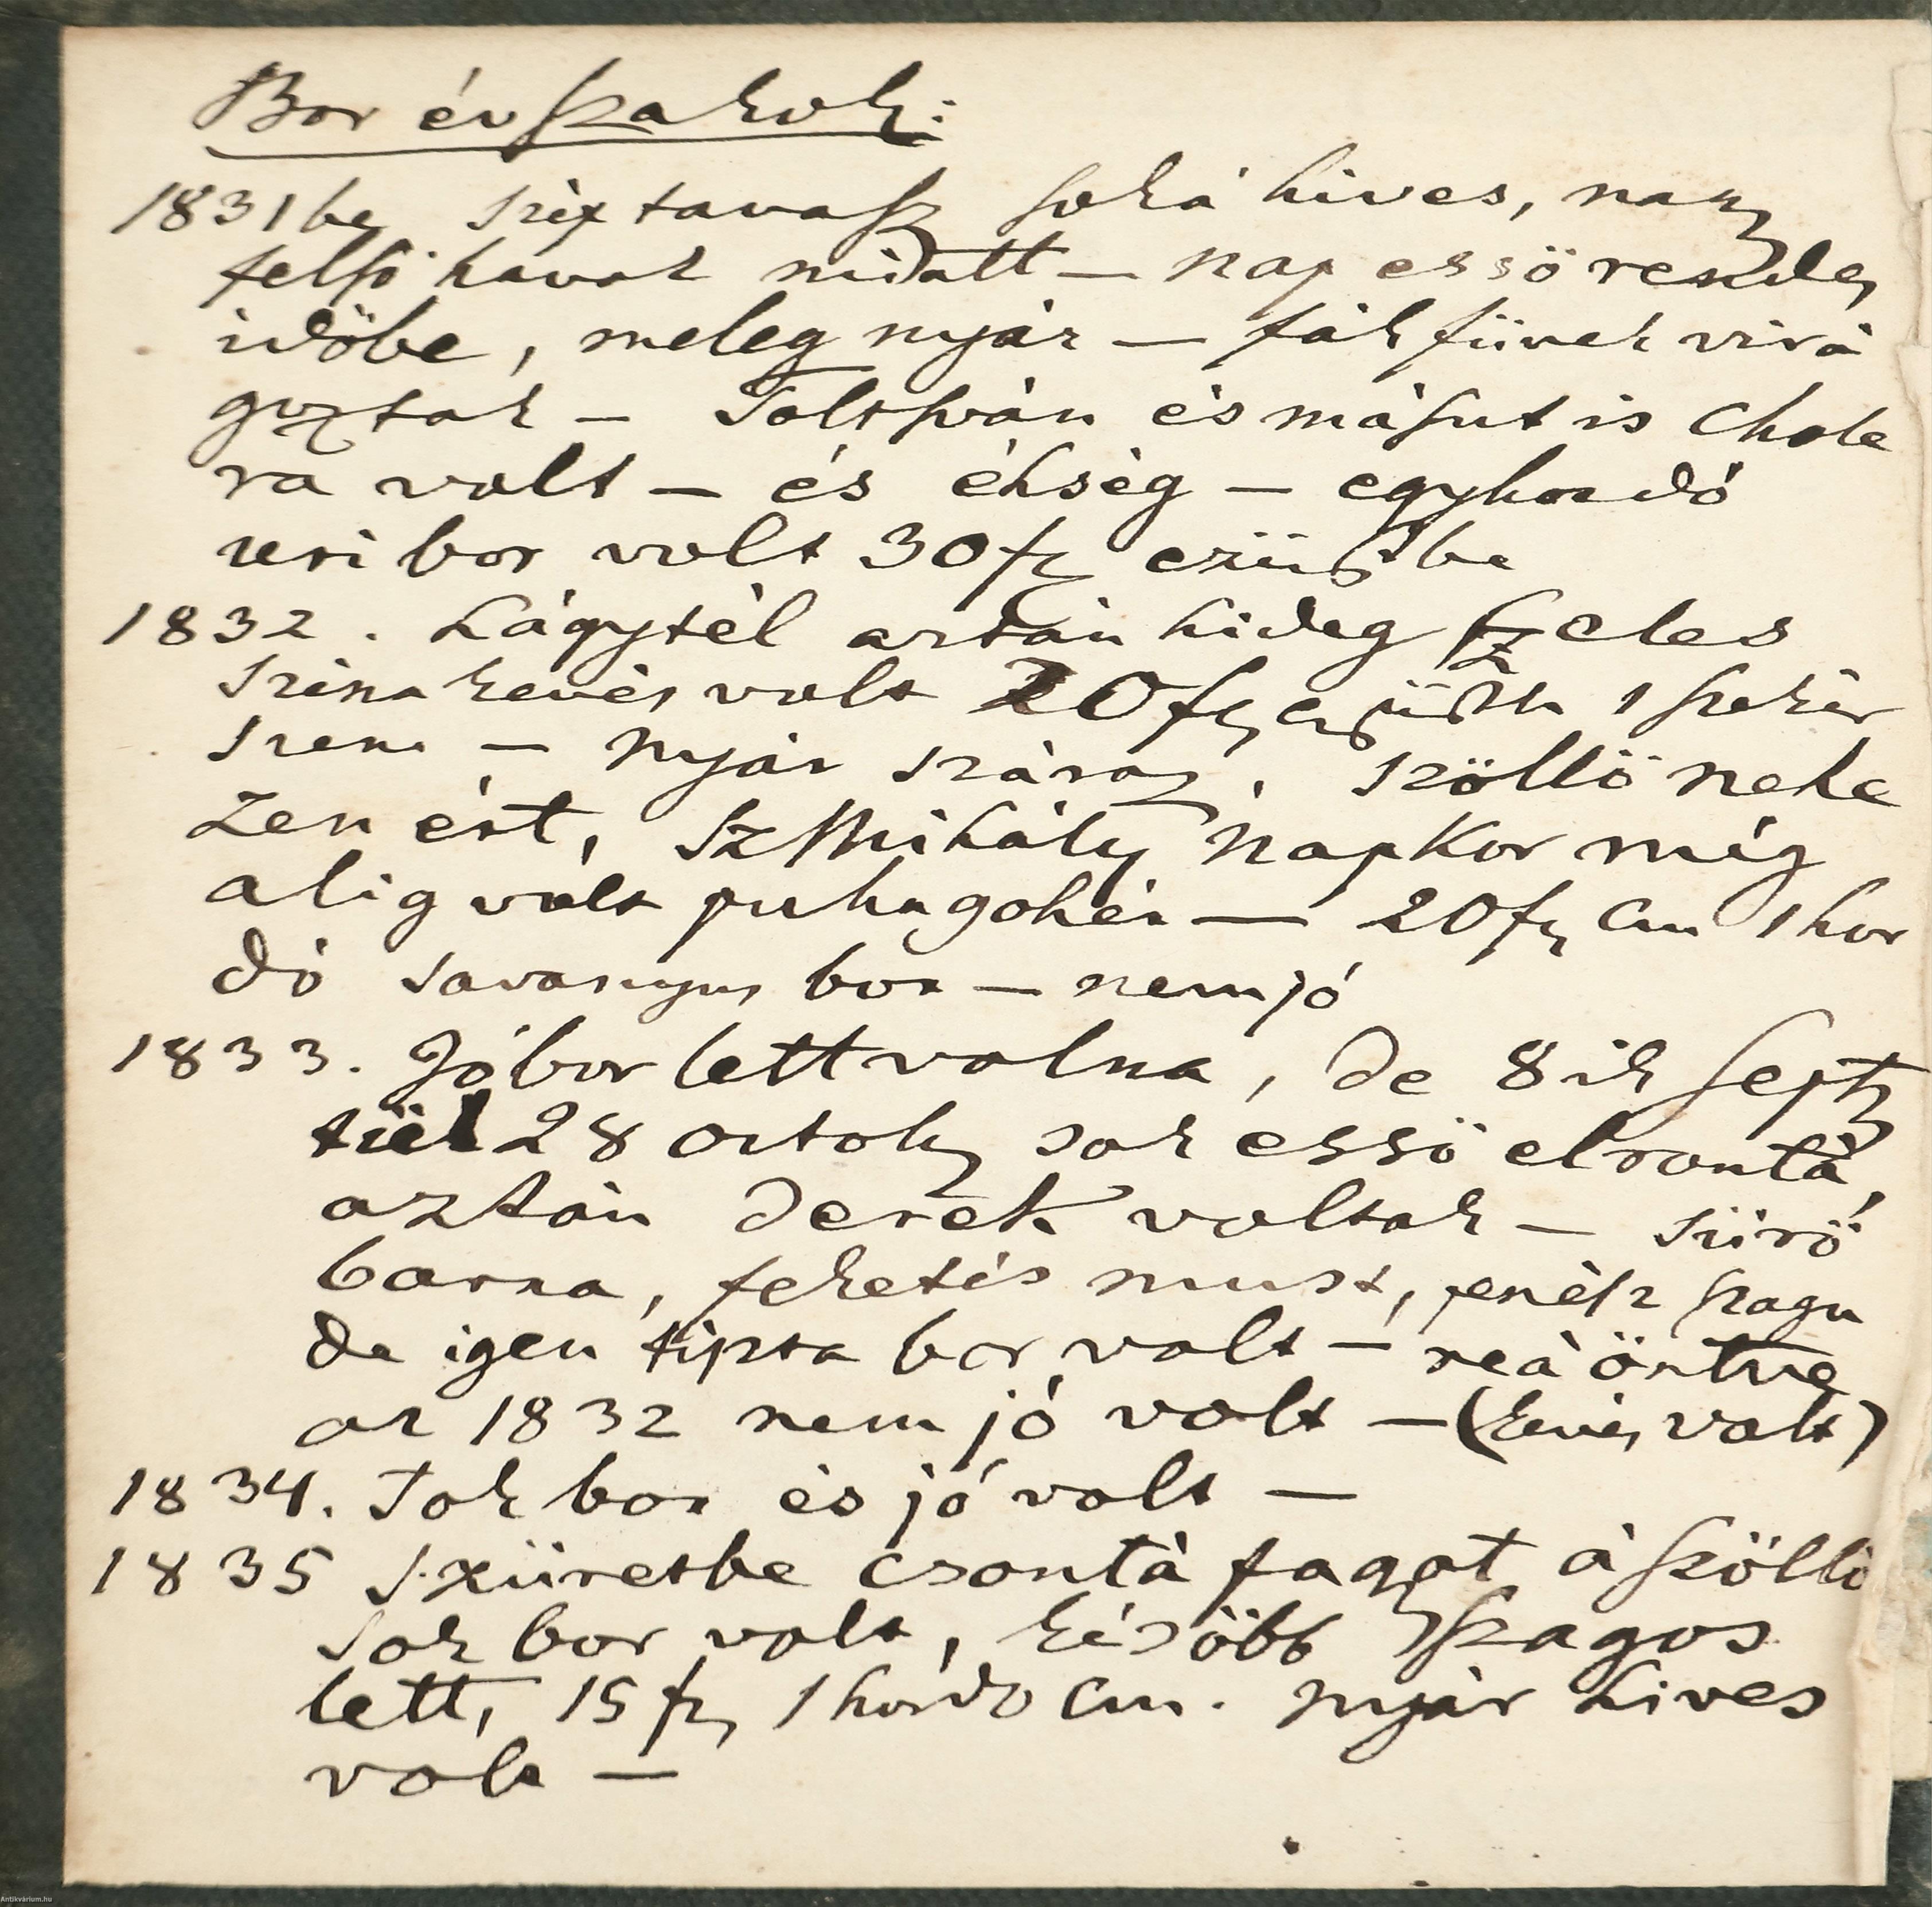 Bor évszakok:
1831be szép tavasz soká hives, nagy
felső havak miatt — nap essö rendes
időbe, meleg nyár — fák füvek virá
goztak — Toltsván és másut is chole
ra volt — és éhség — egy hordó
uri bor volt 30 f ezüstbe
1832. Lágy tél aztán hideg szeles
Széna kevés volt 20 f ezüstbe 1 szekér
szena — nyár száraz, szöllö nehe
zen ért, Sz Mihály napkor még
alig vált puha gohér — 20 f cm 1 hor
dó savanyus bor — nem jó
1833. Jó bor lett volna, de 8ik sept
tüel 28 octob sok essö elrontá,
aztán derek voltak — sürö
barna, feketés must, penész szagu
de igen tiszta bor volt — reá öntve
az 1832 nem jó volt — (kevés volt)
1834. Sok bor és jó volt —
1835 Szüretbe csontá fagyot á szöllö
sok bor volt, később szagos
lett, 15 f 1 hordo cm. nyár hives
volt —
Antikvárium.hu